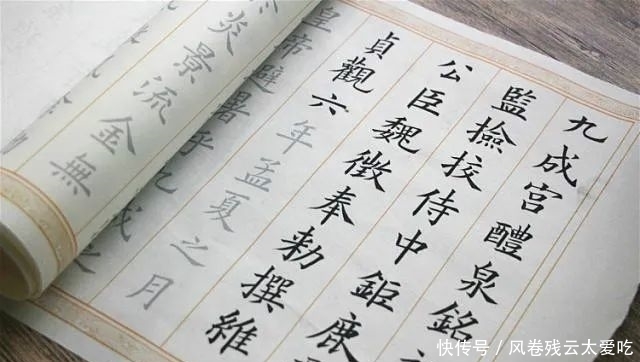 九成宫醴泉銘
監撿挍侍中鉅鹿
公臣魏徵奉勑撰維
貞觀六年孟夏之月
皇帝避暑乎九成之
炎景流金無
快传号 / 风卷残云太爱吃